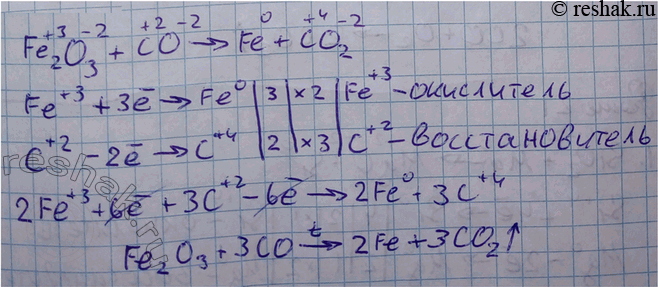 reshak.ru
Fe₂⁺³O₃⁻² + C⁺²O⁻² → Fe⁰ + C⁺⁴O₂⁻²
Fe⁺³ + 3e̅ → Fe⁰ | 3 | ×2 | Fe⁺³ - окислитель
C⁺² - 2e̅ → C⁺⁴ | 2 | ×3 | C⁺² - восстановитель
2Fe⁺³ + 6e̅ + 3C⁺² - 6e̅ → 2Fe⁰ + 3C⁺⁴
Fe₂O₃ + 3CO →ᵗ 2Fe + 3CO₂↑